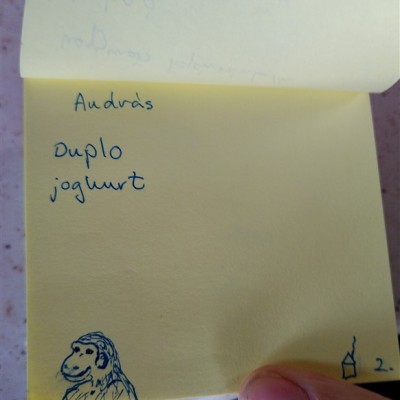 András
Duplo
joghurt
2.